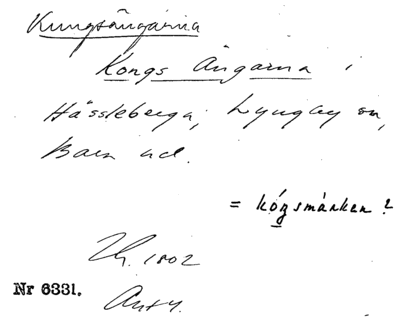 Kungsängarna
Kongs Ängarna i
Hässleberga, Lyngby sn,
Bara hd.
= kógsmánken?
Nr 6331.